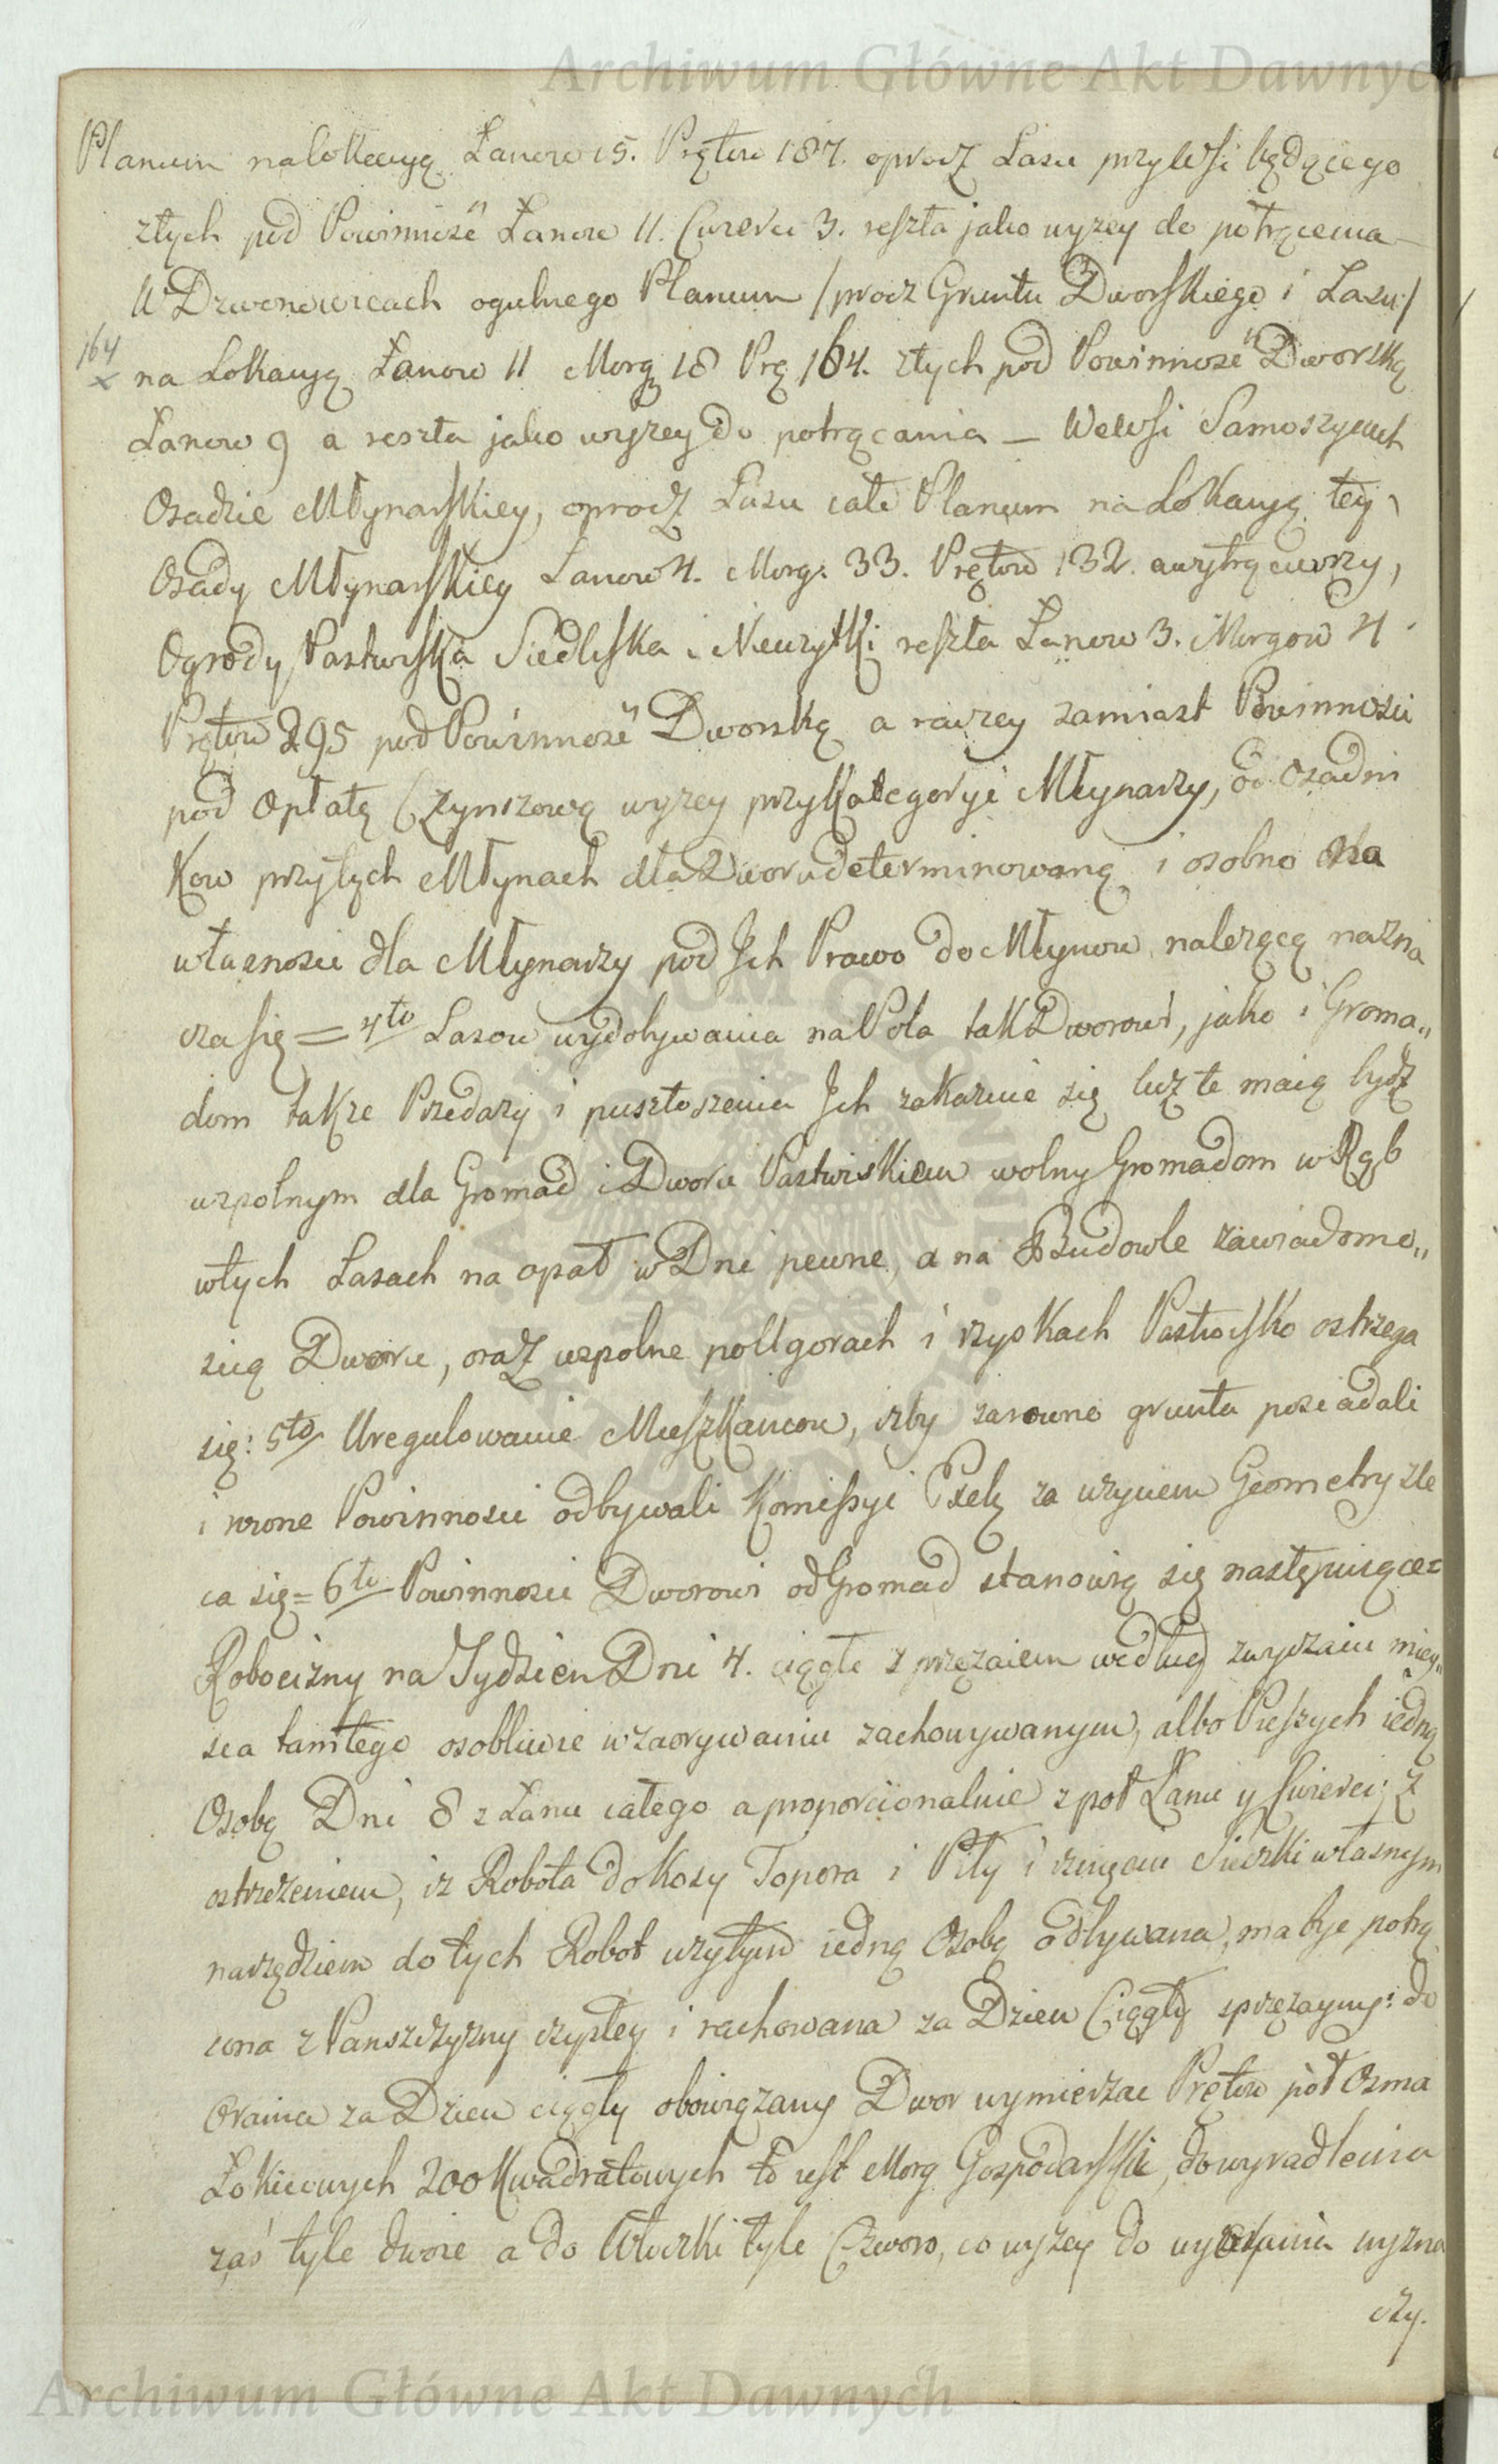 Archiwum Główne Akt Dawnych
Planum na lokacyą Łanow 15. Prętow 187. oprocz Lasu przy Wsi będącego
ztych pod Powinność Łanow 11. Cwerci 3. reszta jako wyzey do potrącenia
W Drwonowicach ogulnego Planum /procz Gruntu Dworskiego i Lasu/
164
x na Lokacyą Łanow 11 Morg 18 Prę 164. ztych pod Powinność Dworską
Łanow 9 a reszta jako wyzey do potrącania — We Wsi Samoszycach
Osadzie Młynarskiey, oprocz Lasu całe Planum na Lokacyą tey
Osady Młynarskiey Łanow 4. Morg: 33. Prętow 132. a wytrąciwszy,
Ogrody, Pastwiska Siedliska i Nieuzytki reszta Łanow 3. Morgow 4
Prętow 295 pod Powinność Dworską a raczey zamiast Powinności
pod Opłatę Czynszową wyzey przy Kategoryi Młynarzy, od Osadni
kow przy tych Młynach dla Dworu determinowaną i osobno
własności dla Młynarzy pod Jch Prawo do Młynow nalezącą nazna
cza się = 4to Lasow wydobywania na Pola tak Dworowi, jako i Groma„
dom takze Przedazy i pustoszenia Jch zakazuie się lecz te maią bydz
wspolnym dla Gromad i Dworu Pastwiskiem wolny Gromadom w Rąb
w tych Lasach na opał w Dni pewne, a na Budowle zawiadomo„
scią Dworu, oraz wspolne po Ugorach i rzyskach Pastwisko ostrzega
się: 5to Uregulowanie Mieszkancow, izby zarowne grunta posiadali
i rowne Powinności odbywali Komissyi Exek za uzyciem Geometry zle
ca się = 6to Powinnosci Dworowi od Gromad stanowią się następuiące =
Robocizny na Tydzien Dni 4. ciągłe z przęzaiem według zwyczaiu miey„
sca tamtego osobliwie w zaorywaniu zachowywanym, albo Pieszych iedną
Osobą Dni 8 z Łanu całego a proporcionalnie z poł Łanu y Cwierci: z
ostrzezeniem, iz Robota do Kosy Topora i Piły i rznięciu Sieczki własnym
narzędziem do tych Robot uzytym iedną Osobą odbywana, ma bye potrą
cona z Panszczyzny czystey i rachowana za Dzien Ciągły sprzęzayny: do
Orania za Dzien ciągły obowiązany Dwor wymierzac Prętow poł Osma
Łokciowych 200 Kwadratowych to iest Morg Gospodarski, do wyradlenia
zaś tyle dwoie a do Włoczki tyle Czworo, co wyzey do wyorania wyzna
czy.
Archiwum Główne Akt Dawnych